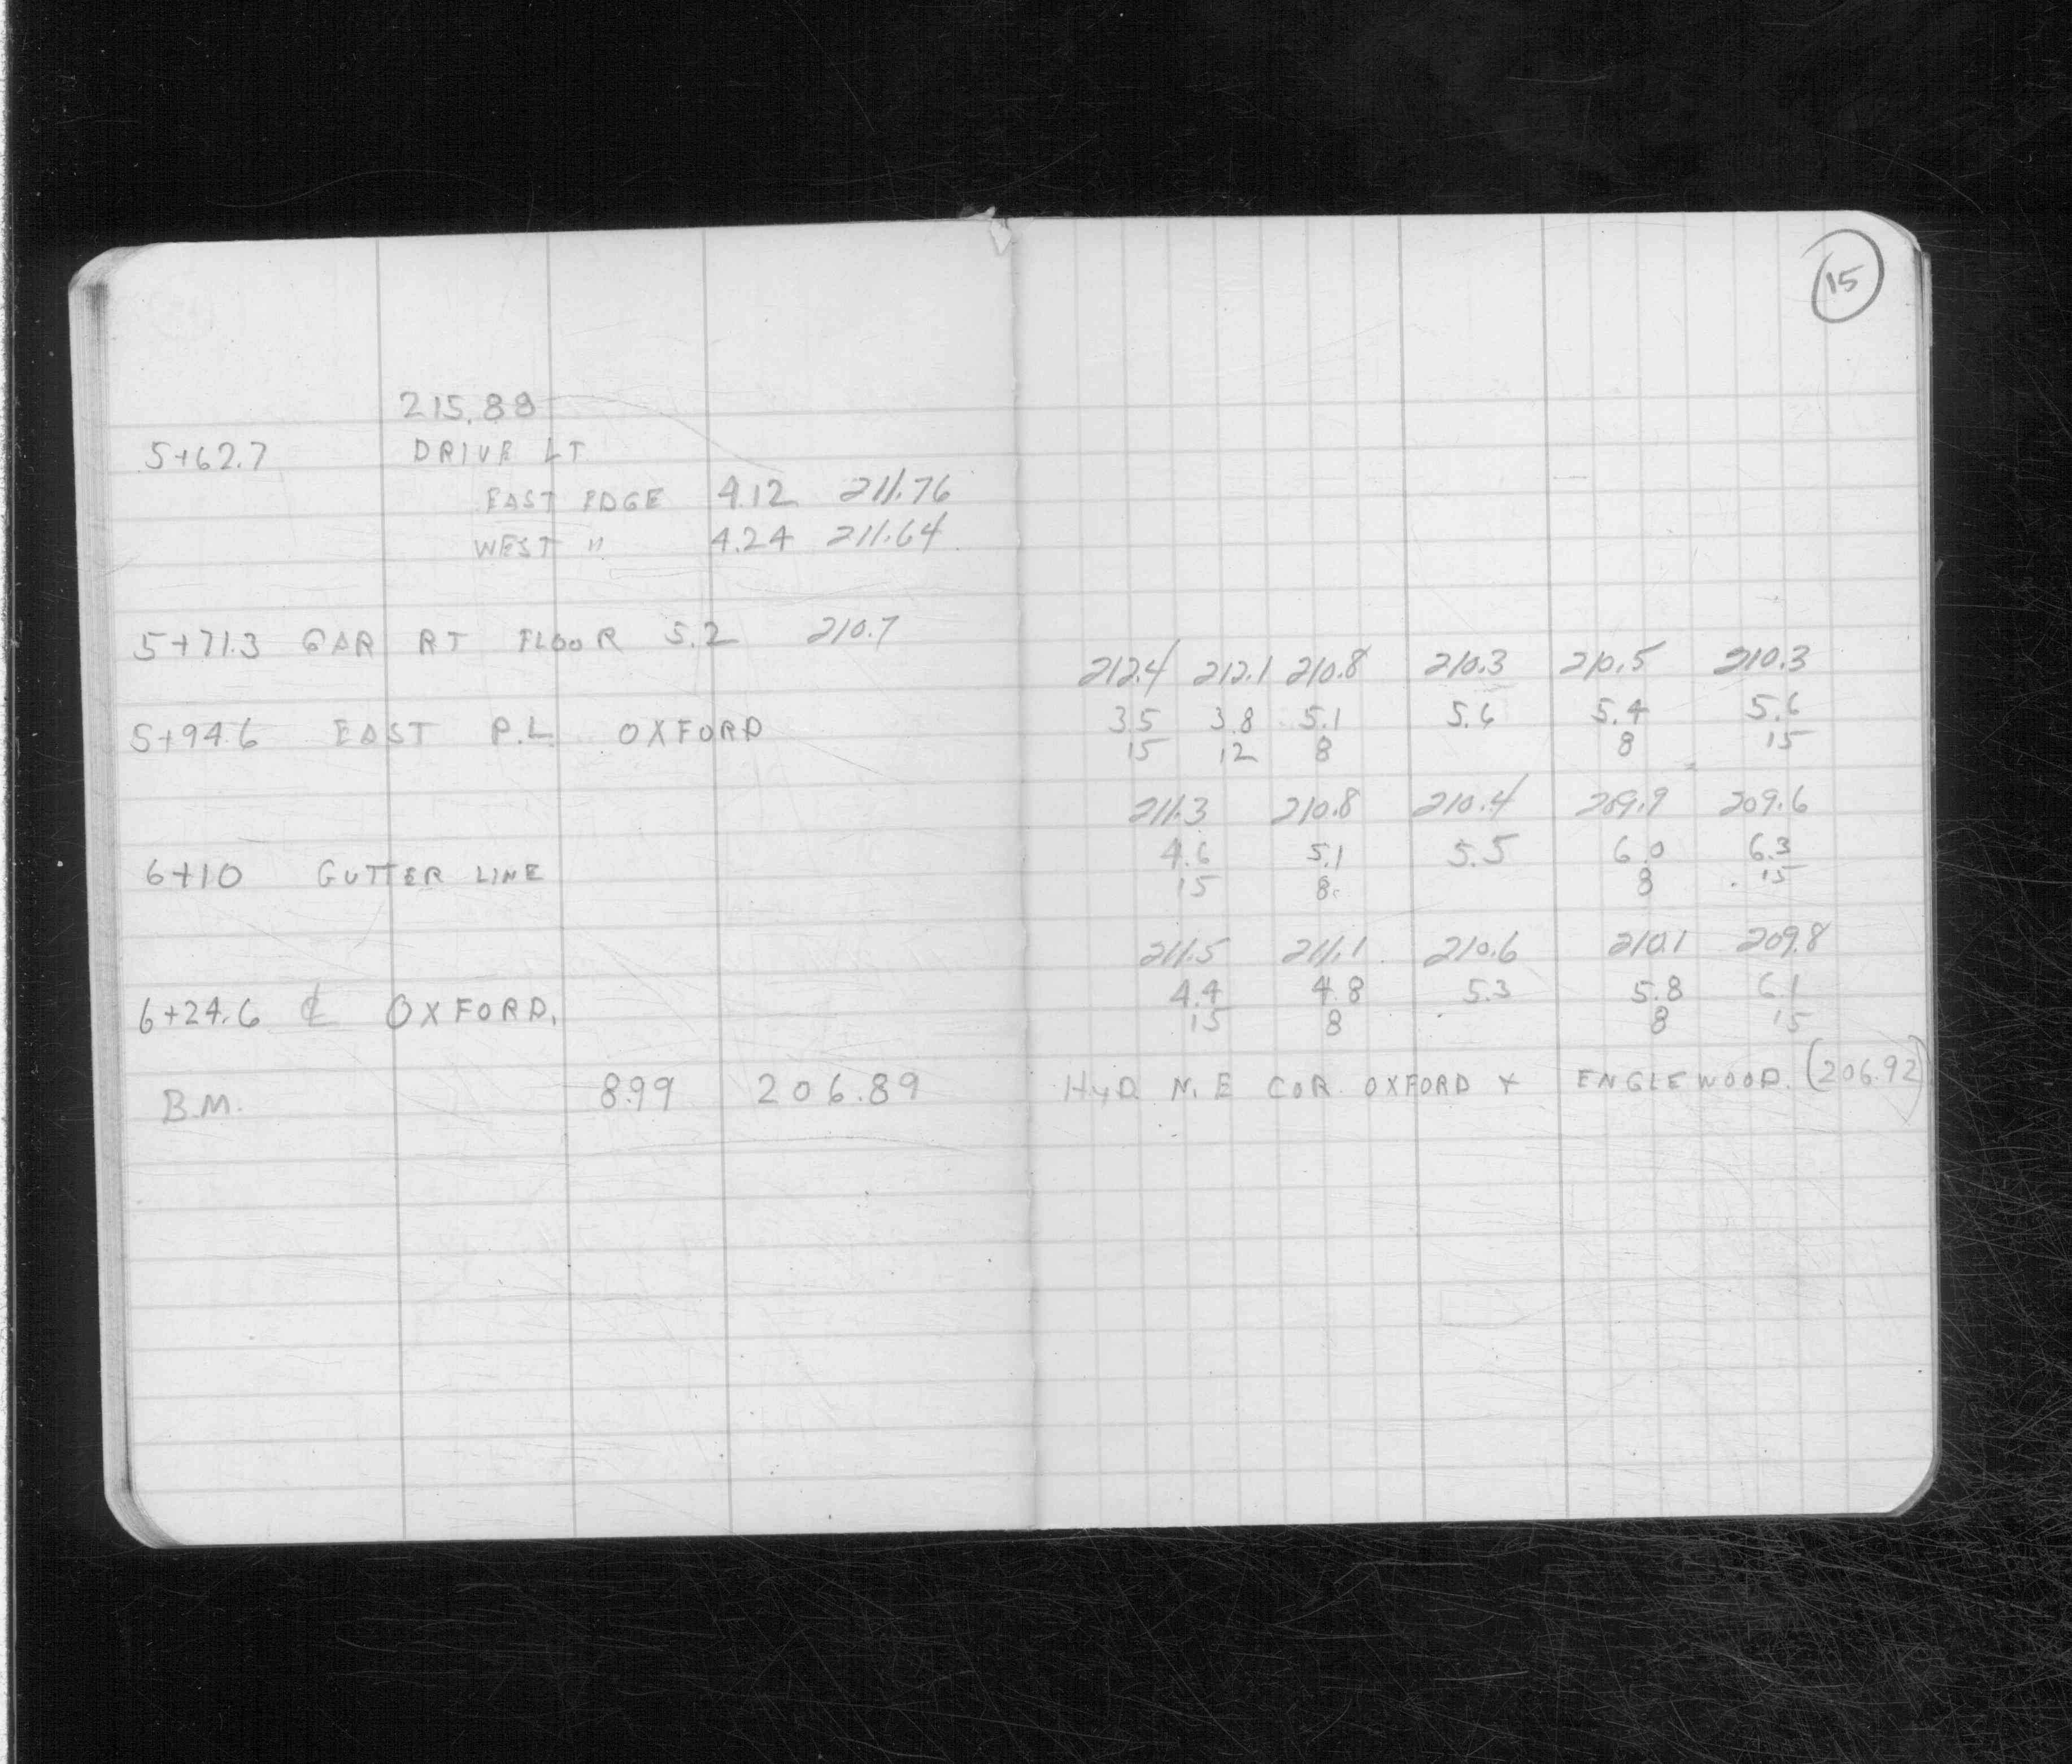 15
215.88
5+62.7 DRIVE LT
EAST EDGE 4.12 211.76
WEST " 4.24 211.64
5+71.3 GAR RT FLOOR 5.2 210.7
212.4 212.1 210.8 210.3 210.5 210.3
5+94.6 EAST P.L. OXFORD 3.5 3.8 5.1 5.6 5.4 5.6
15 12 8 8 15
211.3 210.8 210.4 209.9 209.6
6+10 GUTTER LINE 4.6 5.1 5.5 6.0 6.3
15 8 8 15
211.5 211.1 210.6 210.1 209.8
6+24.6 ℄ OXFORD. 4.4 4.8 5.3 5.8 6.1
15 8 8 15
B.M. 8.99 206.89 HYD. N.E COR OXFORD + ENGLEWOOD. (206.92)